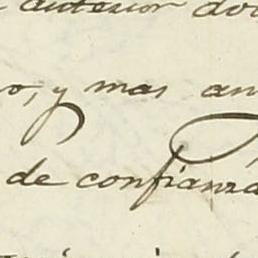 anterior do
o, y mas an
de confianza